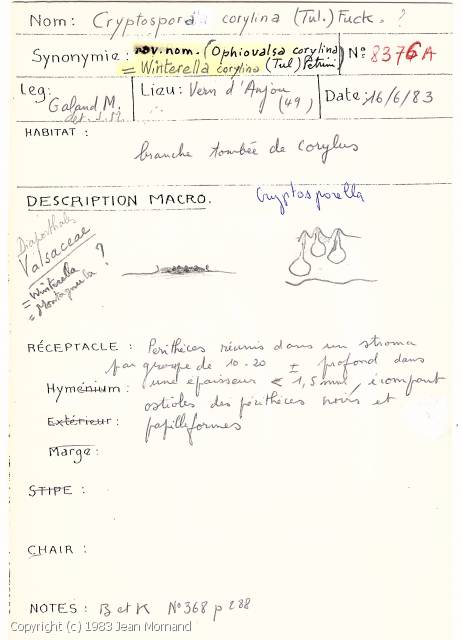 Nom: Cryptospora corylina (Tul.) Fuck. ?
Synonymie: nov. nom. (Ophiovalsa corylina
= Winterella corylina (Tul) Petrini)
N°: 8376A
Leg: Galand M.
Lieu: Vern d'Anjou
(49)
Date: 16/6/83
HABITAT :
branche tombée de corylus
DESCRIPTION MACRO.
Cryptosporella
Diaporthales
Valsaceae
= Winterella ?
= Montagnula
RÉCEPTACLE : Périthèces réunis dans un stroma
par groupe de 10-20 ± profond dans
Hyménium: une épaisseur < 1,5 mm,
ostioles des périthèces noirs et
Extérieur: papilliformes
Marge:
STIPE :
CHAIR :
NOTES: B et K N°368 p 288
Copyright (c) 1983 Jean Mornand